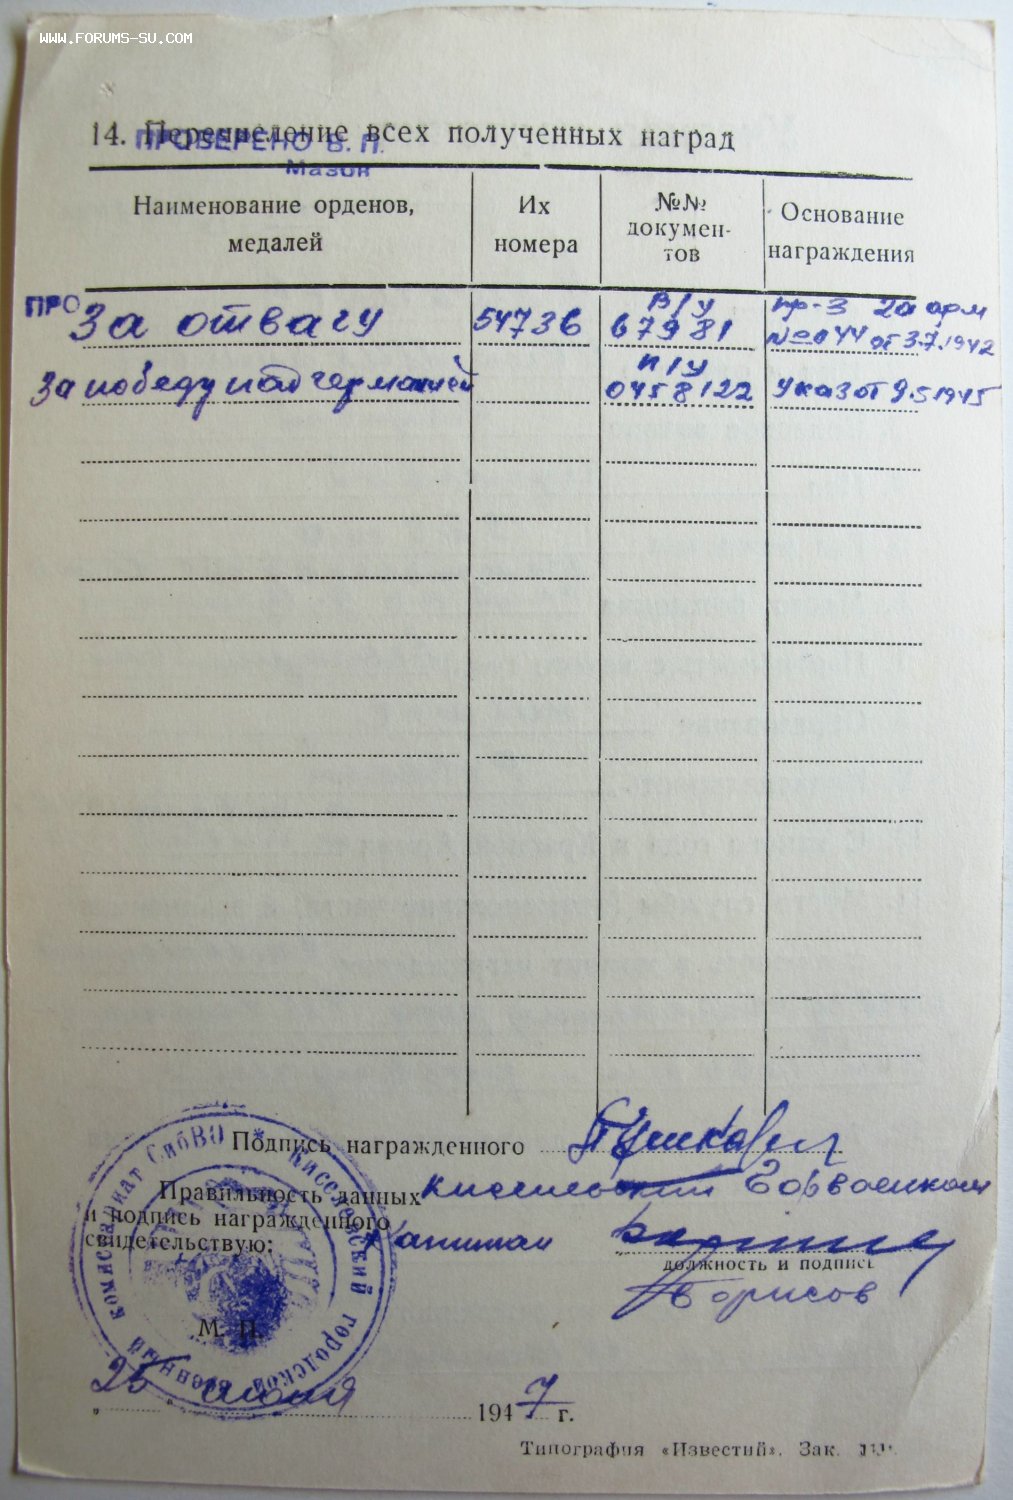 WWW.FORUMS-SU.COM
14. Перечисление всех полученных наград
ПРОВЕРЕНО В. П.
Мазок
Наименование орденов, медалей
Их номера
№№ документов
Основание награждения
ПРО
За отвагу 54736 В/у 67981 пр-з 2а арм №044 от 3.7.1942
За победу над германией П/у 0458122 Указ от 9.5.1945
Подпись награжденного
Правильность данных
и подпись награжденного
свидетельствую:
Киселевский Горвоенком
Капитан
должность и подпись
Борисов
Киселевский городской военный комиссариат СибВО
М. П.
„25" июня 1947 г.
Типография «Известий». Зак.